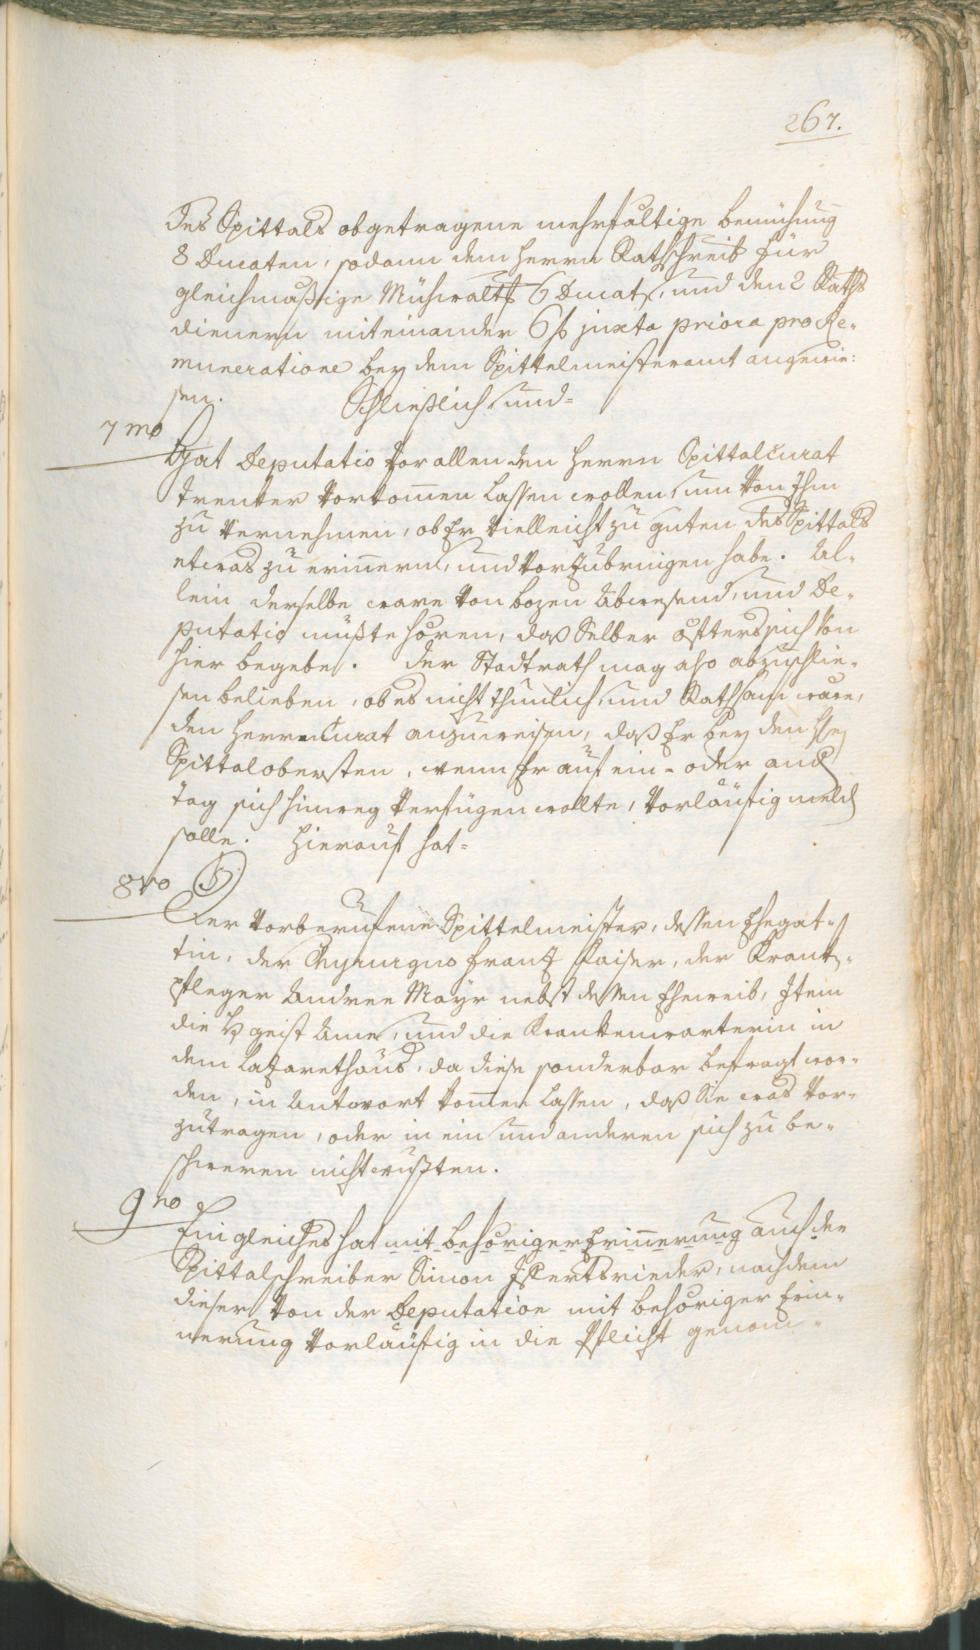 267.
des Spittals obgetragene mehrfaltige bemühung
8 Ducaten, sodann dem Herrn Rathschreib für
gleichmäßige Mühwalt 6 Ducat, und den 2 Raths
dienern miteinander 6 f juxta priora pro Re-
muneratione bey dem Spittelmeisteramt angewie:
sen. Schließlich und=
7mo
Hat Deputatio vor allen den Herrn Spittalcurat
Trenker vorkommen lassen wollen, um von Ihm
zu vernehmen, ob Er vielleicht zu guten des Spittals
etwas zu erinnern, und vorzubringen habe. Al-
lein derselbe ware von Bozen abwesend, und De-
putatio müßte hören, daß Selber öfters sich von
hier begebe. Der Stadtrath mag also abzuschlie-
sen belieben, ob es nicht thunlich, und Rathsam wäre,
den Herrn Curat anzuweisen, daß Er bey den
Spittalobersten, wenn Er auf ein- oder and
Tag sich hinweg verfügen wollte, vorläufig meld
solle. Hierauf hat=
8vo
Der vorberufene Spittelmeister, dessen Ehegat-
tin, der Chyrurgus Franz Kaiser, der Krank-
pfleger Andree Mayr nebst dessen Eheweib, Item
die geist Ame, und die Krankenwarterin in
dem Lazarethaus, da diese sonderbar befragt wor-
den, in Antwort kommen lassen, daß Sie was vor-
zutragen, oder in ein und anderen sich zu be-
schweren nicht wußten.
9no
Ein gleiches hat mit behöriger Erinnerung auch der
Spittalschreiber Simon, nachdem
dieser von der Deputation mit behöriger Erin-
nerung vorläufig in die Pflicht genom-